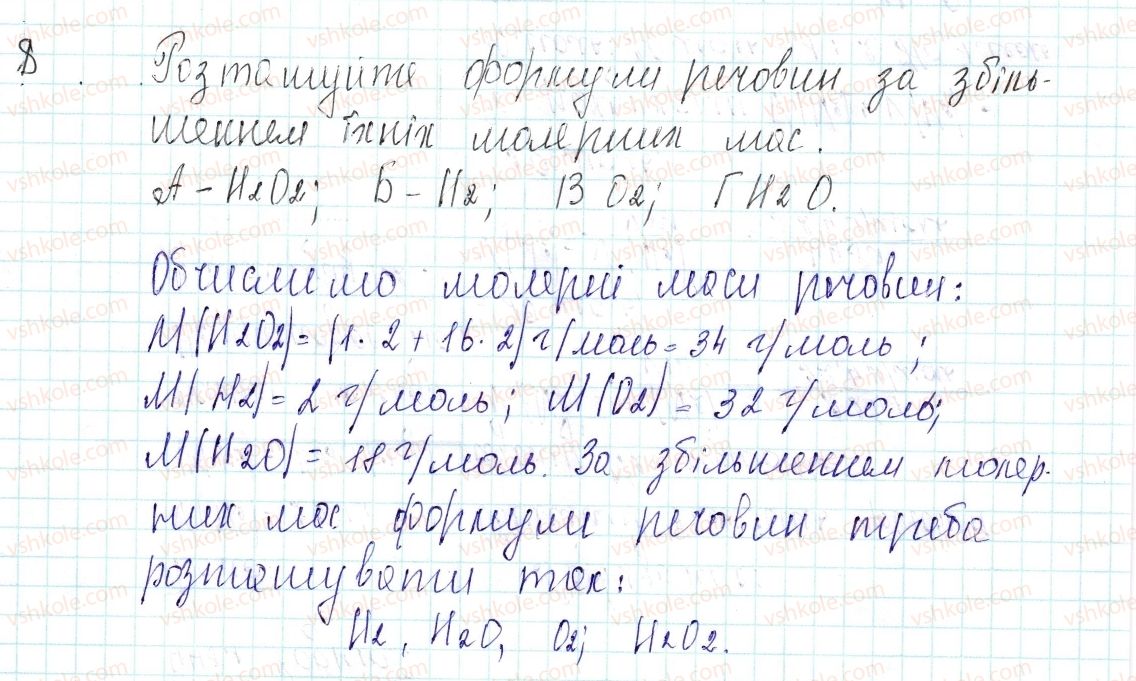 8
Розташуйте формули речовин за збіль-
шенням їхніх молярних мас.
А - H2O2; Б - H2; В O2; Г H2O.
Обчислимо молярні маси речовин:
M(H2O2) = (1·2 + 16·2) г/моль = 34 г/моль;
M(H2) = 2 г/моль; M(O2) = 32 г/моль;
M(H2O) = 18 г/моль. За збільшенням моляр-
них мас формули речовин треба
розташувати так:
H2, H2O, O2; H2O2.